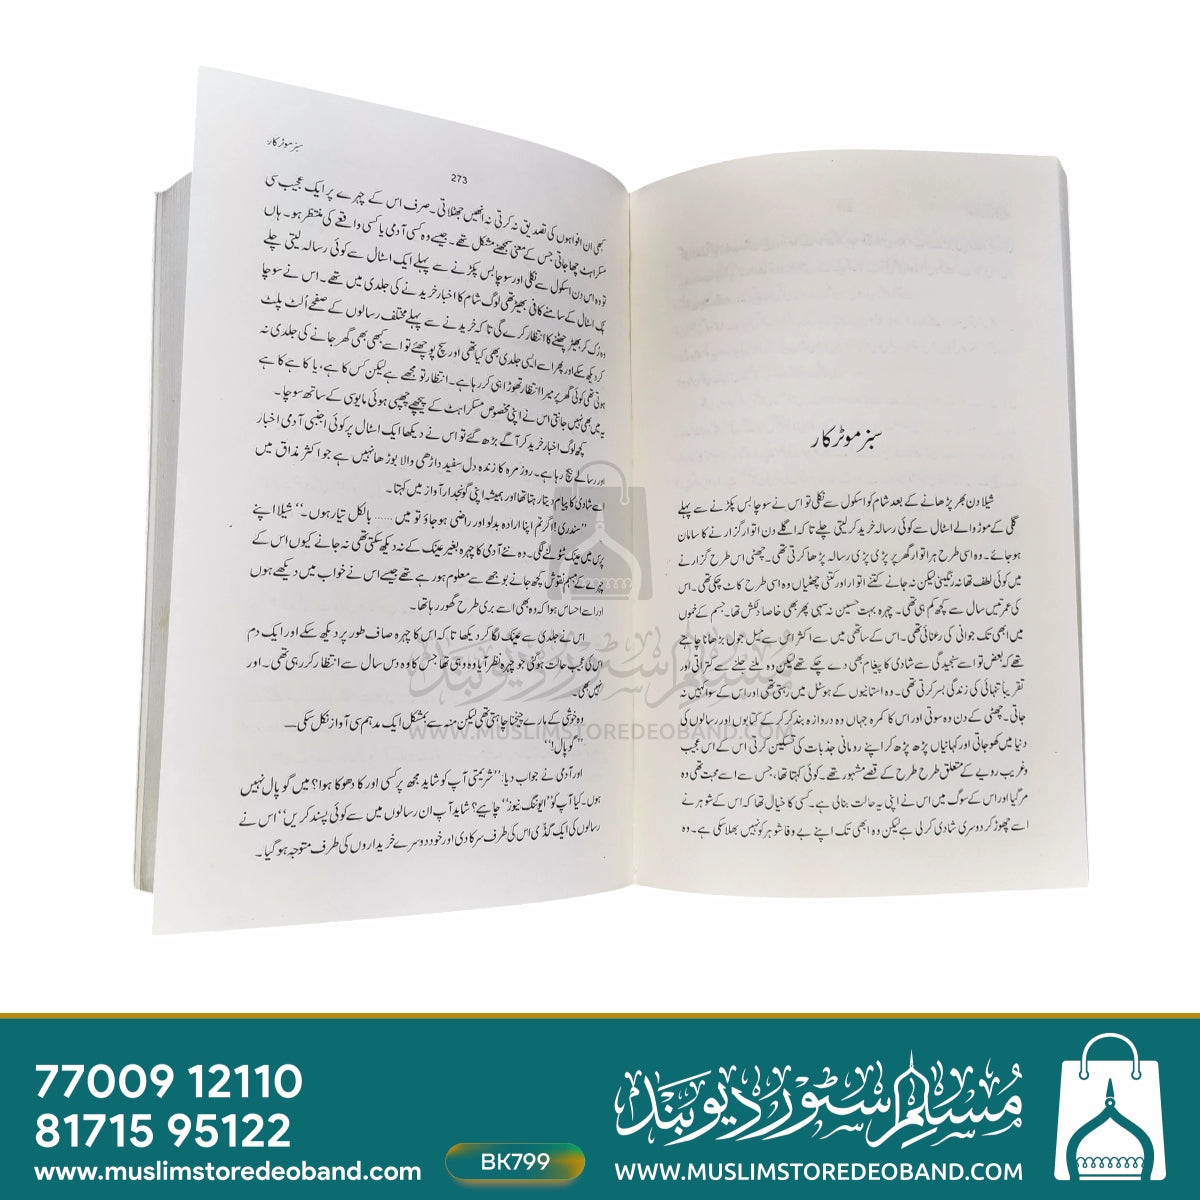 سبز موٹر کار
شیلا دن بھر پڑھانے کے بعد شام کو اسکول سے نکلی تو اس نے سوچا بس پکڑنے سے پہلے
گلی کے موڑ والے اسٹال سے کوئی رسالہ خرید کر لیتی چلے تا کہ اگلے دن اتوار گزارنے کا سامان
ہو جائے۔ وہ اسی طرح ہر اتوار گھر پر پڑی پڑی رسالہ پڑھا کرتی تھی۔ چھٹی اس طرح گزارنے
میں کوئی لطف تھا نہ رنگینی لیکن نہ جانے کتنے اتوار اور کتنی چھٹیاں وہ اسی طرح کاٹ چکی تھی۔ اس
کی عمر تیس سال سے کچھ کم ہی تھی۔ چہرہ بہت حسین نہ سہی پھر بھی خاصا دلکش تھا۔ جسم کے خموں
میں ابھی تک جوانی کی رعنائی تھی۔ اس کے ساتھی میں سے اکثر اس سے میل جول بڑھانا چاہتے
تھے کہ بعض تو اسے سنجیدگی سے شادی کا پیغام بھی دے چکے تھے لیکن وہ ملنے جلنے سے کتراتی اور
تقریباً تنہائی کی زندگی بسر کرتی تھی۔ وہ استانیوں کے ہوسٹل میں رہتی تھی اور اس کے سوا کہیں نہ
جاتی۔ چھٹی کے دن وہ سوتی اور اس کا کمرہ جہاں وہ دروازہ بند کر کر کے کتابوں اور رسالوں کی
دنیا میں کھو جاتی اور کہانیاں پڑھ پڑھ کر اپنے رومانی جذبات کی تسکین کرتی اس کے اس عجیب
و غریب رویے کے متعلق طرح طرح کے قصے مشہور تھے۔ کوئی کہتا تھا، جس سے اسے محبت تھی وہ
مر گیا اور اس کے سوگ میں اس نے اپنی یہ حالت بنالی ہے۔ کسی کا خیال تھا کہ اس کے شوہر نے
اسے چھوڑ کر دوسری شادی کر لی ہے لیکن وہ ابھی تک اپنے بے وفا شوہر کو نہیں بھلا سکی ہے۔ وہ
سبز موٹر کار
273
کبھی ان افواہوں کی تصدیق نہ کرتی نہ انھیں جھٹلاتی۔ صرف اس کے چہرے پر ایک عجیب سی
مسکراہٹ چھا جاتی جس کے معنی سمجھنے مشکل تھے۔ جیسے وہ کسی آدمی یا کسی واقعے کی منتظر ہو۔ ہاں
تو وہ اس دن اسکول سے نکلی اور سوچا بس پکڑنے سے پہلے ایک اسٹال سے کوئی رسالہ لیتی چلے
بک اسٹال کے سامنے کافی بھیڑ تھی لوگ شام کا اخبار خریدنے کی جلدی میں تھے۔ اس نے سوچا
وہ رُک کر بھیڑ چھٹنے کا انتظار کرے گی تا کہ خریدنے سے پہلے مختلف رسالوں کے صفحے اُلٹ پلٹ
کر دیکھ سکے اور پھر اسے ایسی جلدی بھی کیا تھی اور سچ پوچھئے تو اسے کبھی بھی گھر جانے کی جلدی نہ
ہوتی تھی کوئی گھر پر میرا انتظار تھوڑا ہی کر رہا ہے۔ انتظار تو مجھے ہے لیکن کس کا ہے، یا کاہے کا ہے
یہ میں بھی نہیں جانتی اس نے اپنی مخصوص مسکراہٹ کے پیچھے چھپی ہوئی مایوسی کے ساتھ سوچا۔
کچھ لوگ اخبار خرید کر آگے بڑھ گئے تو اس نے دیکھا ایک اسٹال پر کوئی اجنبی آدمی اخبار
اور رسالے بیچ رہا ہے۔ روز مرہ کا زندہ دل سفید داڑھی والا بوڑھا نہیں ہے جو اکثر مذاق میں
اسے شادی کا پیام دیتا رہتا تھا اور ہمیشہ اپنی گونجدار آواز میں کہتا۔
”سندری! اگر تم اپنا ارادہ بدلو اور راضی ہو جاؤ تو میں ...... بالکل تیار ہوں۔“ شیلا اپنے
پرس میں عینک ٹٹولنے لگی۔ وہ نئے آدمی کا چہرہ بغیر عینک کے نہ دیکھ سکتی تھی نہ جانے کیوں اس کے
چہرے کے مبہم نقوش کچھ جانے بوجھے سے معلوم ہو رہے تھے جیسے اس نے خواب میں دیکھے ہوں
اور اسے احساس ہوا کہ وہ بھی اسے بری طرح گھور رہا تھا۔
اس نے جلدی سے عینک لگا کر دیکھا تا کہ اس کا چہرہ صاف طور پر دیکھ سکے اور ایک دم
اس کی عجب حالت ہو گئی جو چہرہ نظر آیا وہ وہی تھا جس کا وہ دس سال سے انتظار کر رہی تھی۔ اور
نہیں بھی۔
وہ خوشی کے مارے چیخنا چاہتی تھی لیکن منہ سے بمشکل ایک مدہم سی آواز نکل سکی۔۔
”گوپال!“
اور آدمی نے جواب دیا: ”شریمتی آپ کو شاید مجھ پر کسی اور کا دھوکا ہوا؟ میں گوپال نہیں
ہوں۔ کیا آپ کو ”ایوننگ نیوز“ چاہیے؟ شاید آپ ان رسالوں میں سے کوئی پسند کریں“ اس نے
رسالوں کی ایک گڈی اس کی طرف سرکا دی اور خود دوسرے خریداروں کی طرف متوجہ ہو گیا۔
مسلم سٹور دیوبند
WWW.MUSLIMSTOREDEOBAND.COM
77009 12110
81715 95122
www.muslimstoredeoband.com
BK799
مسلم سٹور دیوبند
WWW.MUSLIMSTOREDEOBAND.COM